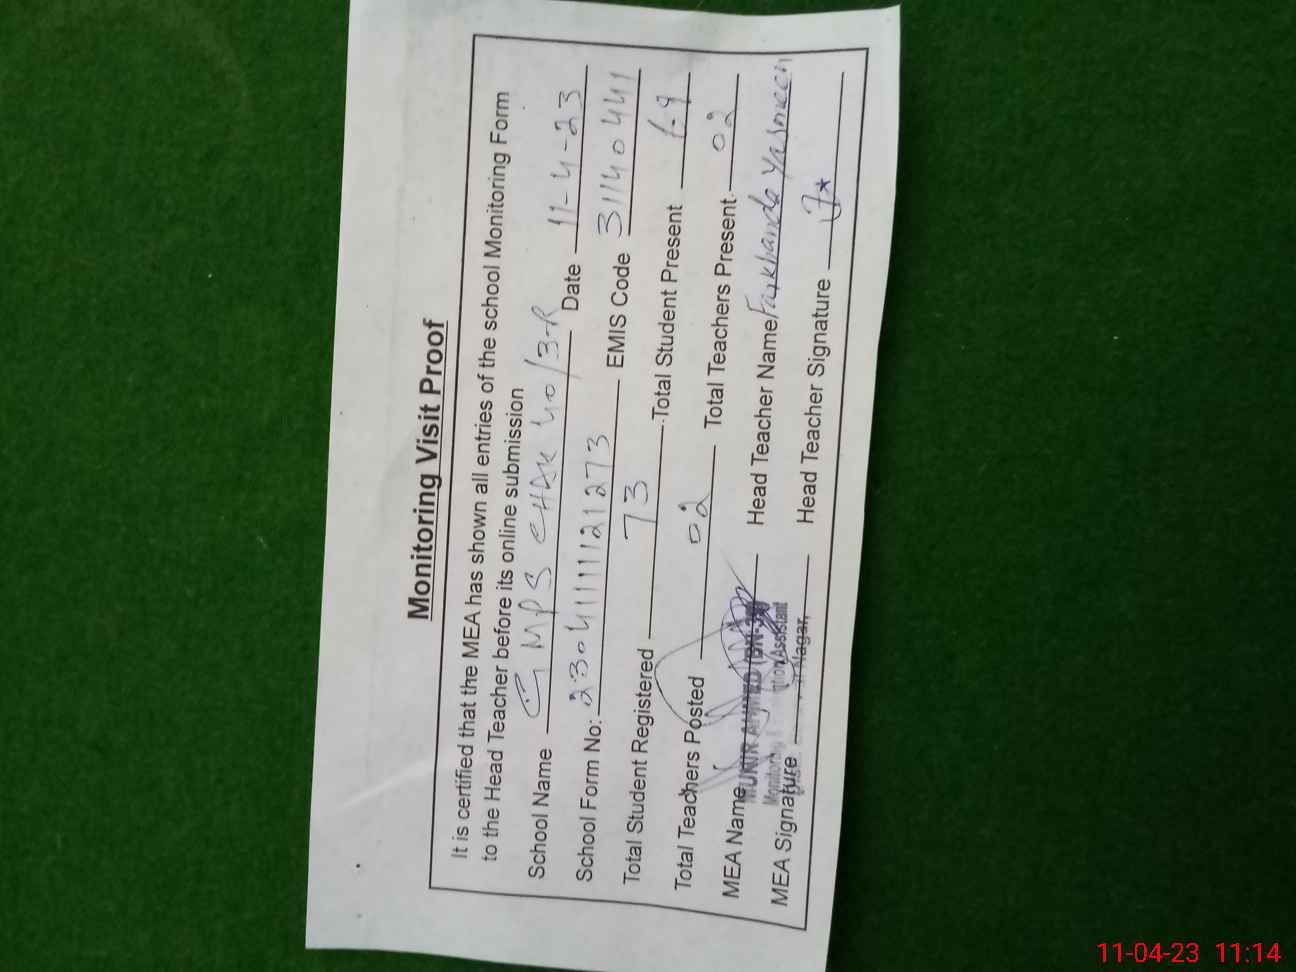 Monitoring Visit Proof
It is certified that the MEA has shown all entries of the school Monitoring Form
to the Head Teacher before its online submission
School Name G MPS CHAK 40/3-R Date 11-4-23
School Form No: 23041111121273 EMIS Code 31140441
Total Student Registered 73 Total Student Present
Total Teachers Posted 02 Total Teachers Present 02
MEA Name MUNIR AHMED Head Teacher Name Farkhanda Yasmeen
Monitoring Assistant
MEA Signature Nagar, Head Teacher Signature
11-04-23 11:14